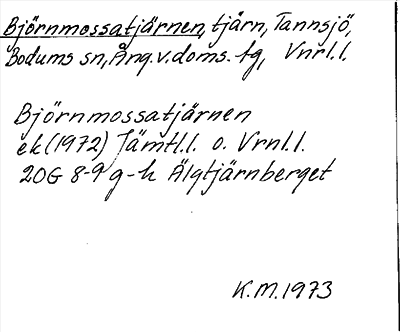 Björnmossatjärnen, tjärn, Tannsjö,
Bodums sn, Ång. v. doms. tg, Vnrl.l.
Björnmossatjärnen
ek (1972) Jämtl.l. o. Vrnl.l.
20G 8-9 g-h Älgtjärnberget
K.M. 1973